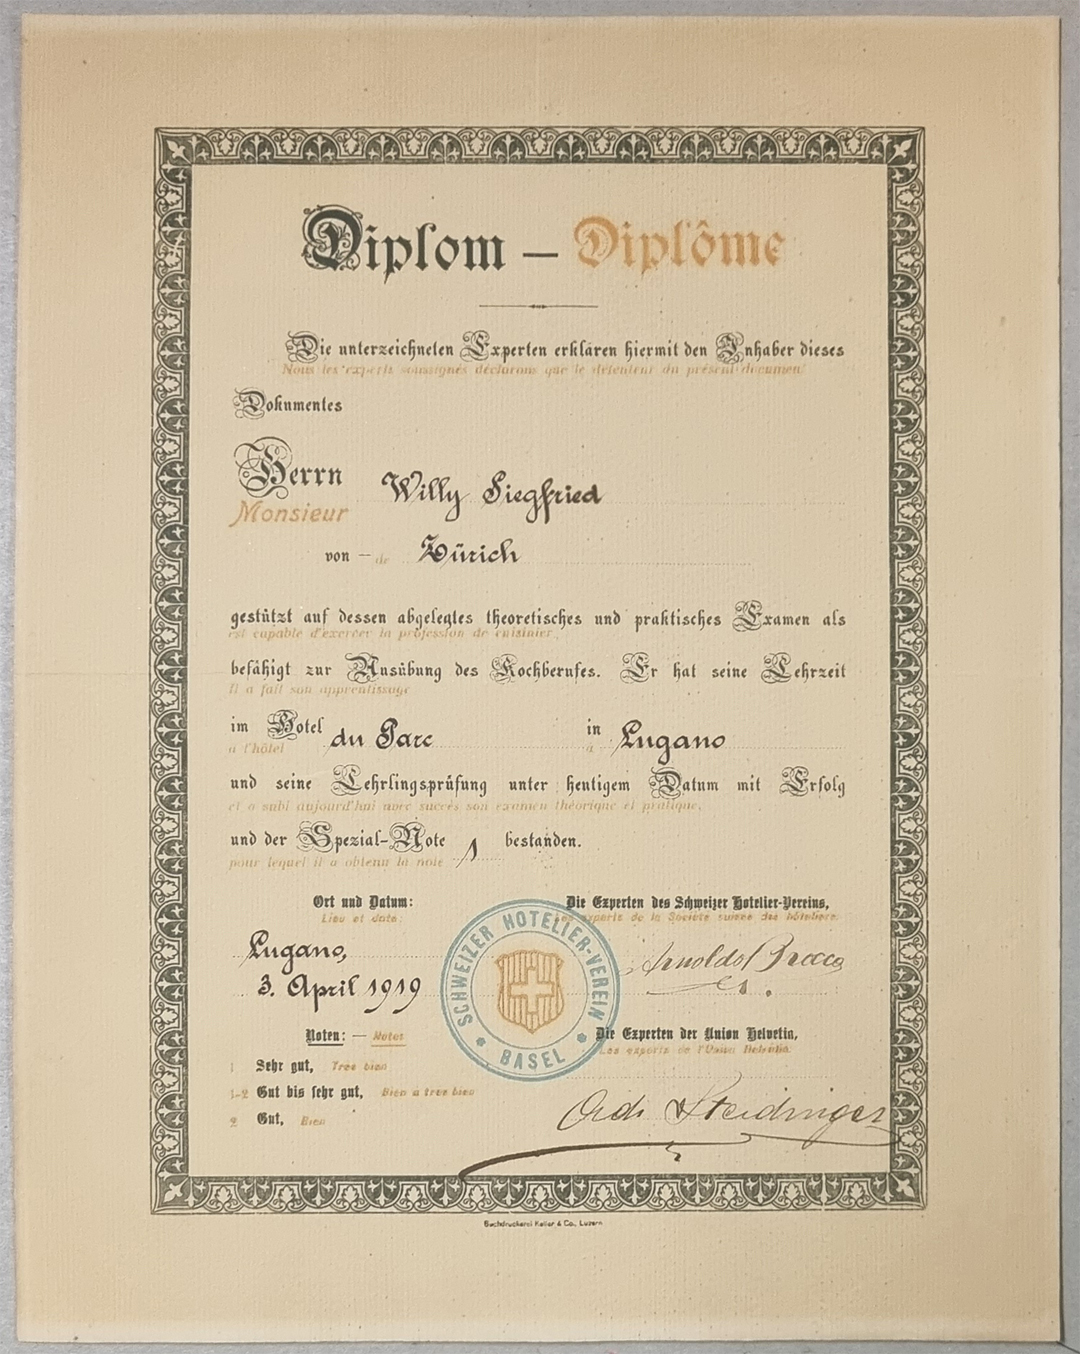 Diplom — Diplôme
Die unterzeichneten Experten erklären hiermit den Inhaber dieses
Nous les experts soussignés déclarons que le détenteur du présent document
Dokumentes
Herrn Willy Siegfried
Monsieur
von — de Zürich
gestützt auf dessen abgelegtes theoretisches und praktisches Examen als
est capable d'exercer la profession de cuisinier.
befähigt zur Ausübung des Kochberufes. Er hat seine Lehrzeit
Il a fait son apprentissage
im Hotel du Parc in Lugano
à l'hôtel à
und seine Lehrlingsprüfung unter heutigem Datum mit Erfolg
et a subi aujourd'hui avec succès son examen théorique et pratique,
und der Spezial-Note 1 bestanden.
pour lequel il a obtenu la note
Ort und Datum: Die Experten des Schweizer Hotelier-Vereins,
Lieu et date: Les experts de la Société suisse des hôteliers.
Lugano,
3. April 1919
SCHWEIZER HOTELIER-VEREIN
BASEL
Noten: — Notes Die Experten der Union Helvetia,
Les experts de l'Union Helvetia.
1 Sehr gut, Tres bien
1-2 Gut bis sehr gut, Bien a tres bien
2 Gut, Bien
Steidinger
Buchdruckerei Keller & Co., Luzern